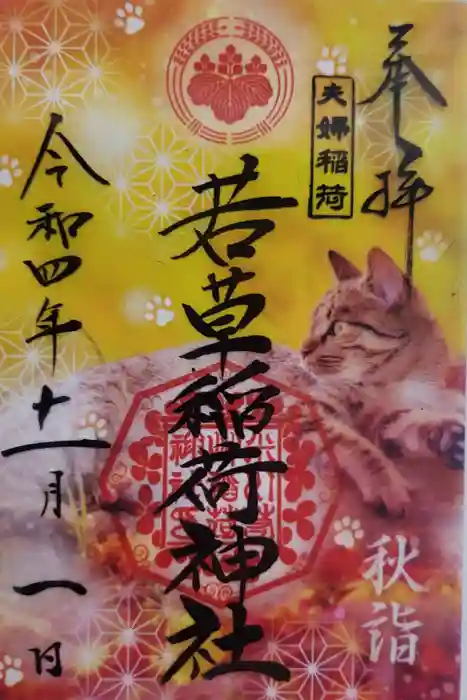 奉拝
夫婦稲荷
若草稲荷神社
令和四年十一月一日
秋詣